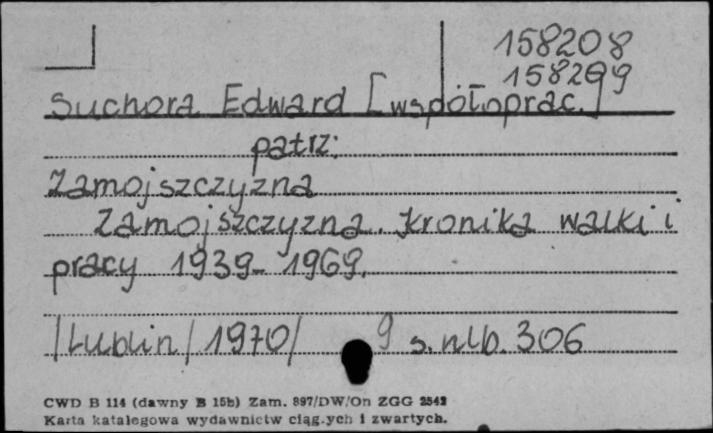 158208
158209
Suchora Edward [współoprac.]
patrz:
Zamojszczyzna
Zamojszczyzna. Kronika walki i
pracy 1939-1969.
/Lublin/ 1970/ 9 s. nlb. 306
CWD B 114 (dawny B 15b) Zam. 897/DW/On ZGG 2542
Karta katalogowa wydawnictw ciąg.ych i zwartych.